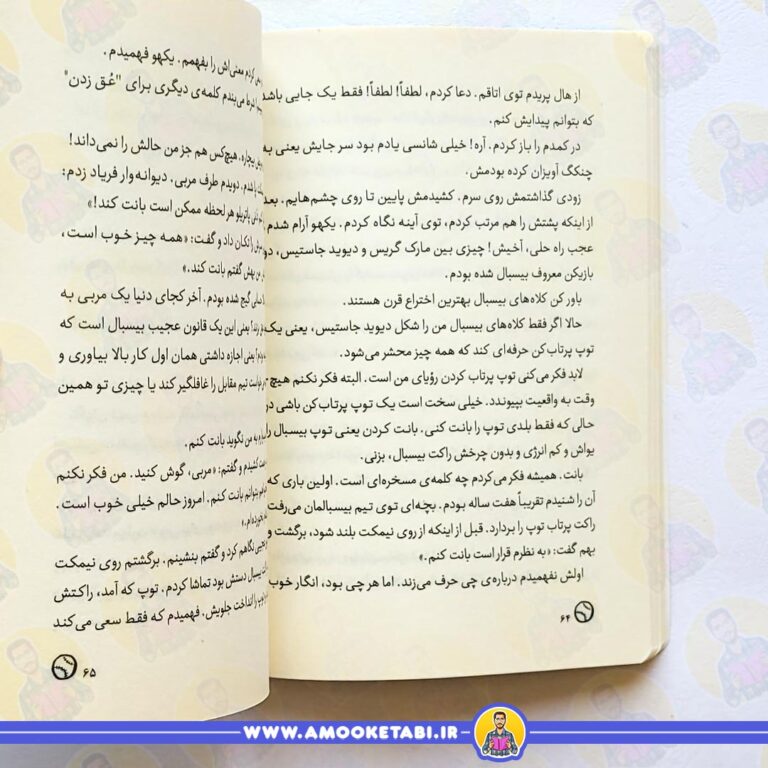 از هال پریدم توی اتاقم. دعا کردم، لطفاً! لطفاً! فقط یک جایی باشد
که بتوانم پیدایش کنم.
در کمدم را باز کردم. آره! خیلی شانسی یادم بود سر جایش یعنی به
چنگک آویزان کرده بودمش.
زودی گذاشتمش روی سرم. کشیدمش پایین تا روی چشم‌هایم. بعد
از اینکه پشتش را هم مرتب کردم، توی آینه نگاه کردم. یکهو آرام شدم.
عجب راه حلی، آخیش! چیزی بین مارک گریس و دیوید جاستیس، دو
بازیکن معروف بیسبال شده بودم.
باور کن کلاه‌های بیسبال بهترین اختراع قرن هستند.
حالا اگر فقط کلاه‌های بیسبال من را شکل دیوید جاستیس، یعنی یک
توپ پرتاب‌کن حرفه‌ای کند که همه چیز محشر می‌شود.
لابد فکر می‌کنی توپ پرتاب کردن رؤیای من است. البته فکر نکنم هیچ-
وقت به واقعیت بپیوندد. خیلی سخت است یک توپ پرتاب‌کن باشی در
حالی که فقط بلدی توپ را بانت کنی. بانت کردن یعنی توپ بیسبال را
یواش و کم انرژی و بدون چرخش راکت بیسبال، بزنی.
بانت. همیشه فکر می‌کردم چه کلمه‌ی مسخره‌ای است. اولین باری که
آن را شنیدم تقریباً هفت ساله بودم. بچه‌ای توی تیم بیسبالمان می‌رفت
راکت پرتاب توپ را بردارد. قبل از اینکه از روی نیمکت بلند شود، برگشت و
بهم گفت: «به نظرم قرار است بانت کنم.»
اولش نفهمیدم درباره‌ی چی حرف می‌زند. اما هر چی بود، انگار خوب
۶۴
کردم معنی‌اش را بفهمم. یکهو فهمیدم.
شرط می‌بندم کلمه‌ی دیگری برای "عُق زدن"
بیچاره. هیچ‌کس هم جز من حالش را نمی‌داند!
شدم. دویدم طرف مربی. دیوانه‌وار فریاد زدم:
هر لحظه ممکن است بانت کند!»
را تکان داد و گفت: «همه چیز خوب است،
من بهش گفتم بانت کند.»
گیج شده بودم. آخر کجای دنیا یک مربی به
یعنی این یک قانون عجیب بیسبال است که
یعنی اجازه داشتی همان اول کار بالا بیاوری و
تیم مقابل را غافلگیر کند یا چیزی تو همین
به من نگوید بانت کنم.
کشیدم و گفتم: «مربی، گوش کنید. من فکر نکنم
بتوانم بانت کنم. امروز حالم خیلی خوب است.
نگاهم کرد و گفتم بنشینم. برگشتم روی نیمکت
بیسبال دستش بود تماشا کردم. توپ که آمد، راکتش
را انداخت جلویش. فهمیدم که فقط سعی می‌کند
۶۵
WWW.AMOOKETABI.IR